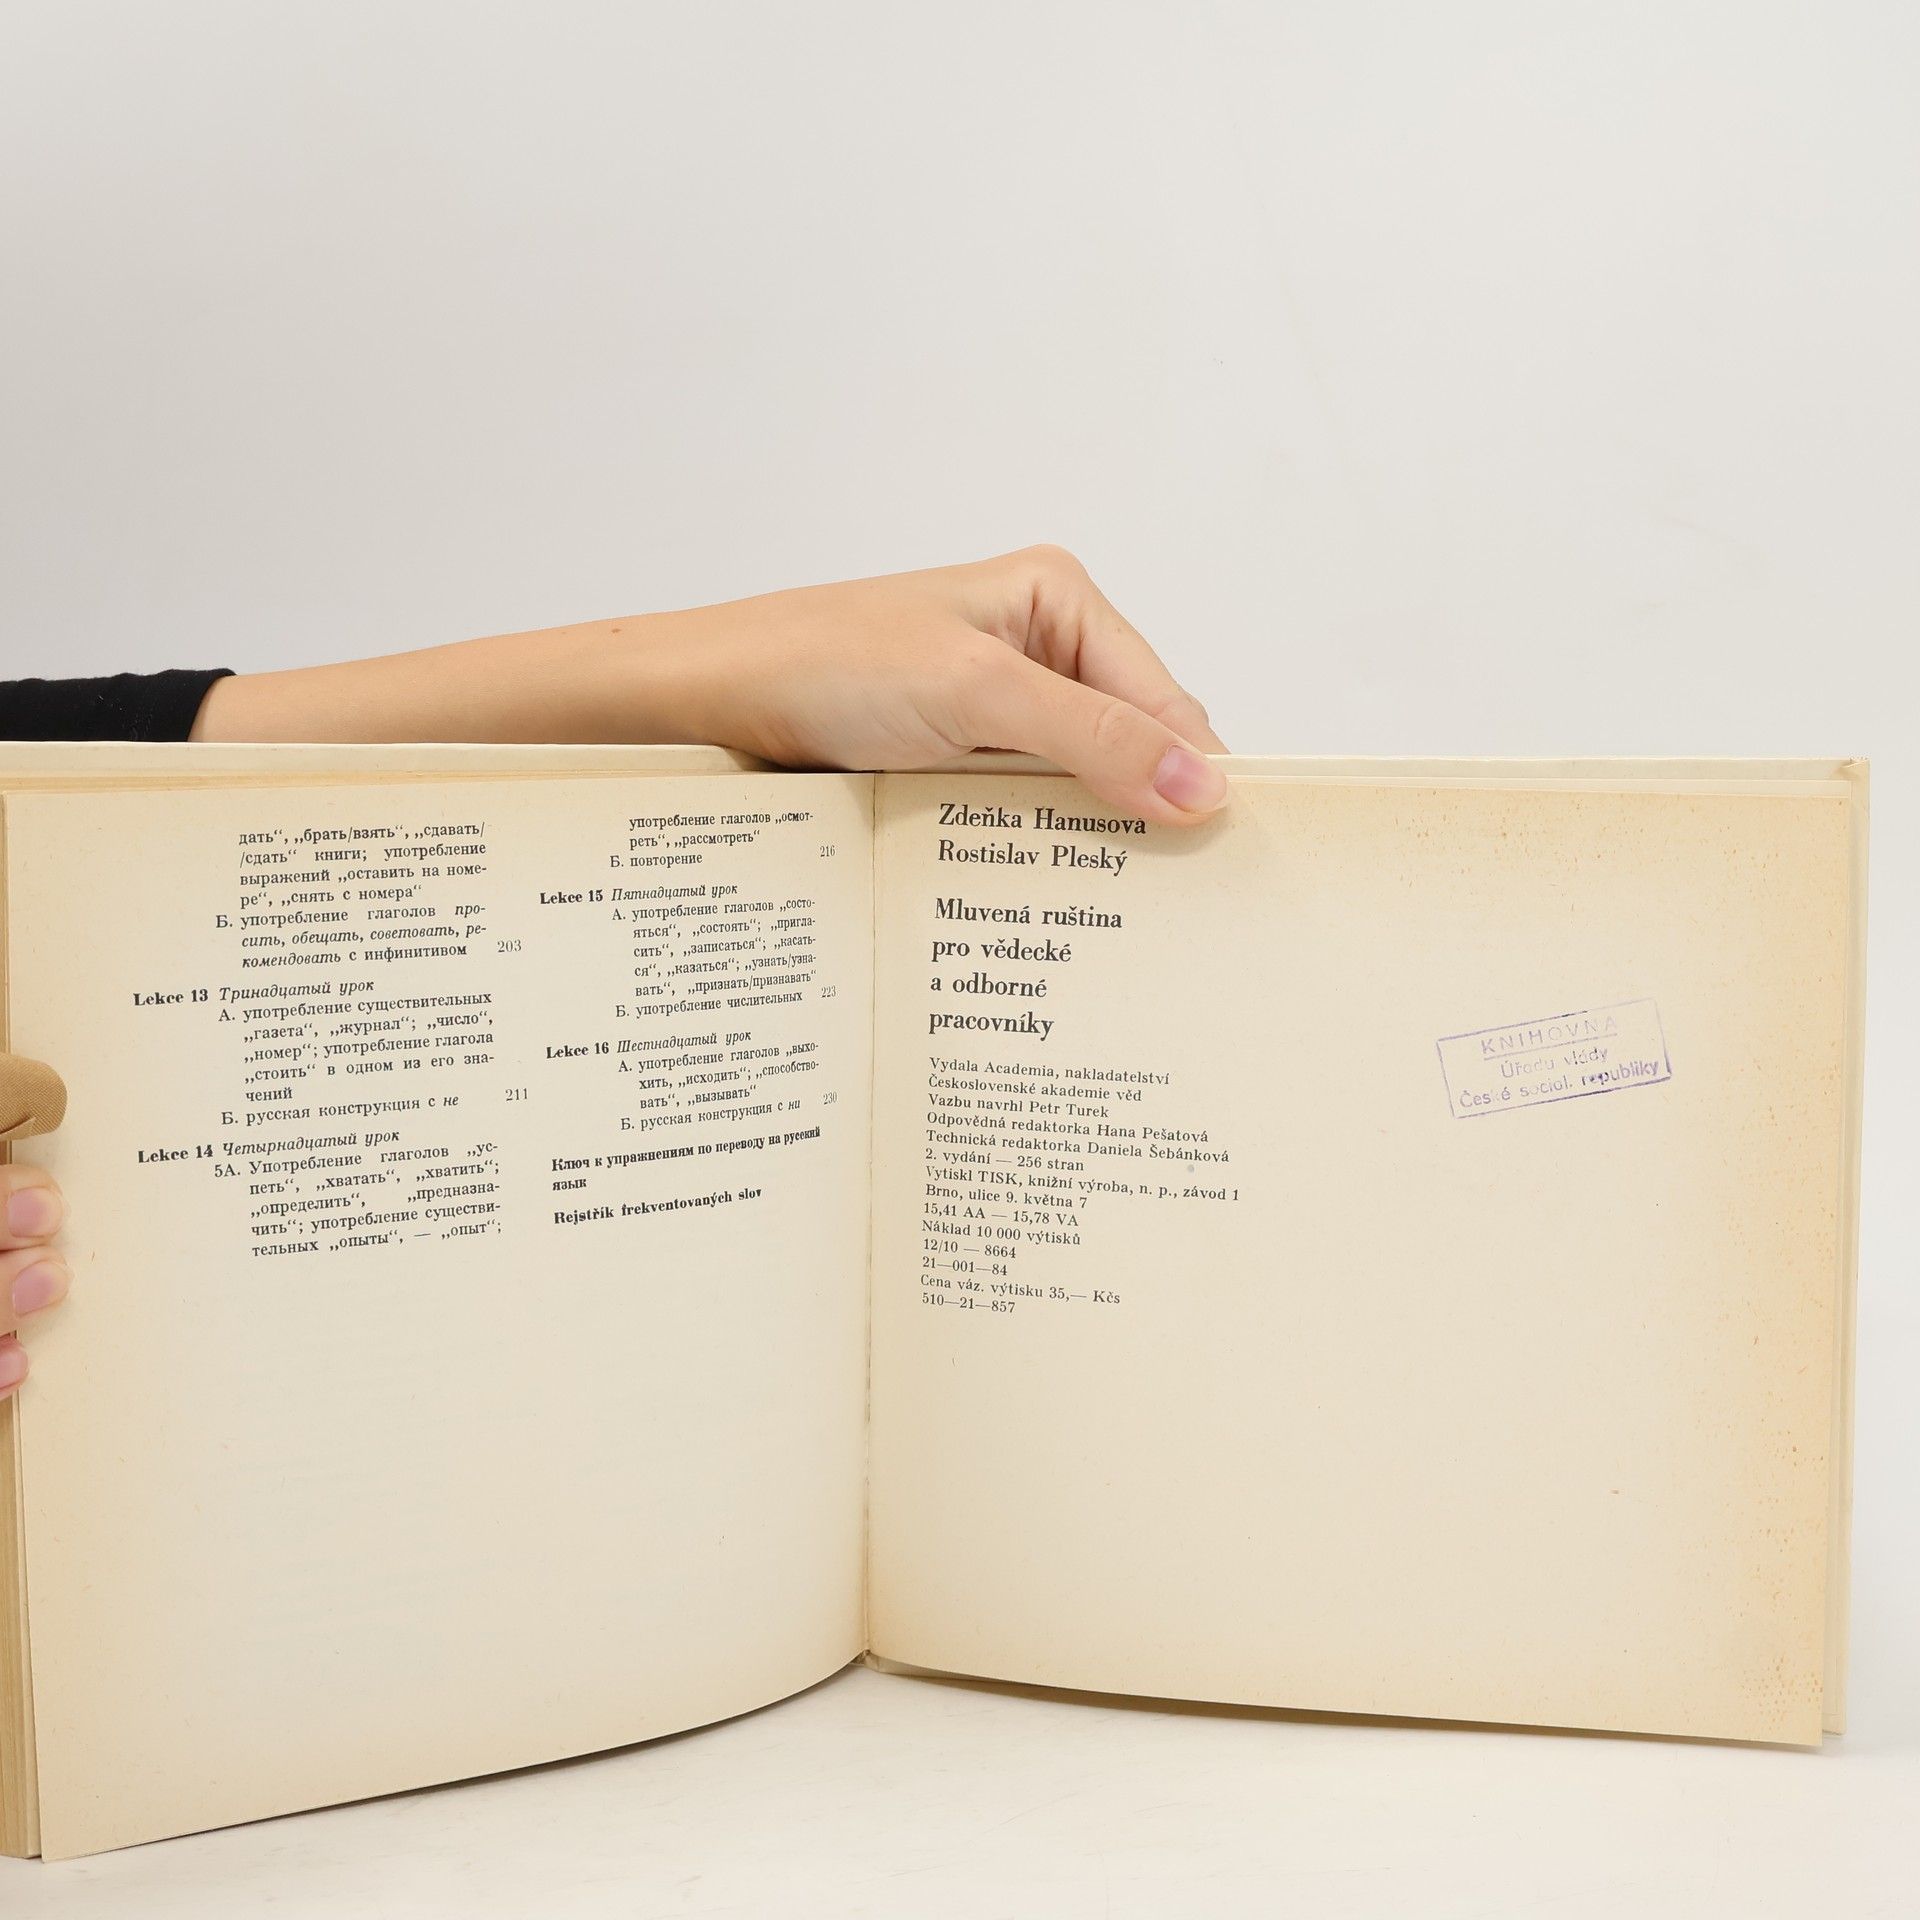 дать“, „брать/взять“, „сдавать/
/сдать“ книги; употребление
выражений „оставить на номе-
ре“, „снять с номера“
Б. употребление глаголов про-
сить, обещать, советовать, ре-
комендовать с инфинитивом 203
Lekce 13 Тринадцатый урок
А. употребление существительных
„газета“, „журнал“; „число“,
„номер“; употребление глагола
„стоить“ в одном из его зна-
чений
Б. русская конструкция с не 211
Lekce 14 Четырнадцатый урок
5А. Употребление глаголов „ус-
петь“, „хватать“, „хватить“;
„определить“, „предназна-
чить“; употребление существи-
тельных „опыты“, — „опыт“;
употребление глаголов „осмот-
реть“, „рассмотреть“
Б. повторение 216
Lekce 15 Пятнадцатый урок
А. употребление глаголов „состо-
яться“, „состоять“; „пригла-
сить“, „записаться“; „касать-
ся“, „казаться“; „узнать/узна-
вать“, „признать/признавать“
Б. употребление числительных 223
Lekce 16 Шестнадцатый урок
А. употребление глаголов „выхо-
хить, „исходить“; „способство-
вать“, „вызывать“
Б. русская конструкция с ни 230
Ключ к упражнениям по переводу на русский
язык
Rejstřík frekventovaných slov
Zdeňka Hanusová
Rostislav Pleský
Mluvená ruština
pro vědecké
a odborné
pracovníky
Vydala Academia, nakladatelství
Československé akademie věd
Vazbu navrhl Petr Turek
Odpovědná redaktorka Hana Pešatová
Technická redaktorka Daniela Šebánková
2. vydání — 256 stran
Vytiskl TISK, knižní výroba, n. p., závod 1
Brno, ulice 9. května 7
15,41 AA — 15,78 VA
Náklad 10 000 výtisků
12/10 — 8664
21—001—84
Cena váz. výtisku 35,— Kčs
510—21—857
KNIHOVNA
Úřadu vlády
České social. republiky